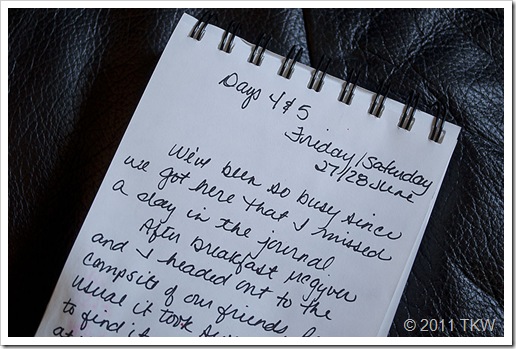 Days 4 & 5
Friday/Saturday
27/28 June
We've been so busy since
we got here that I missed
a day in the journal.
After breakfast McGyver
and I headed out to the
campsite of our friends,
usual it took
to find it
© 2011 TKW